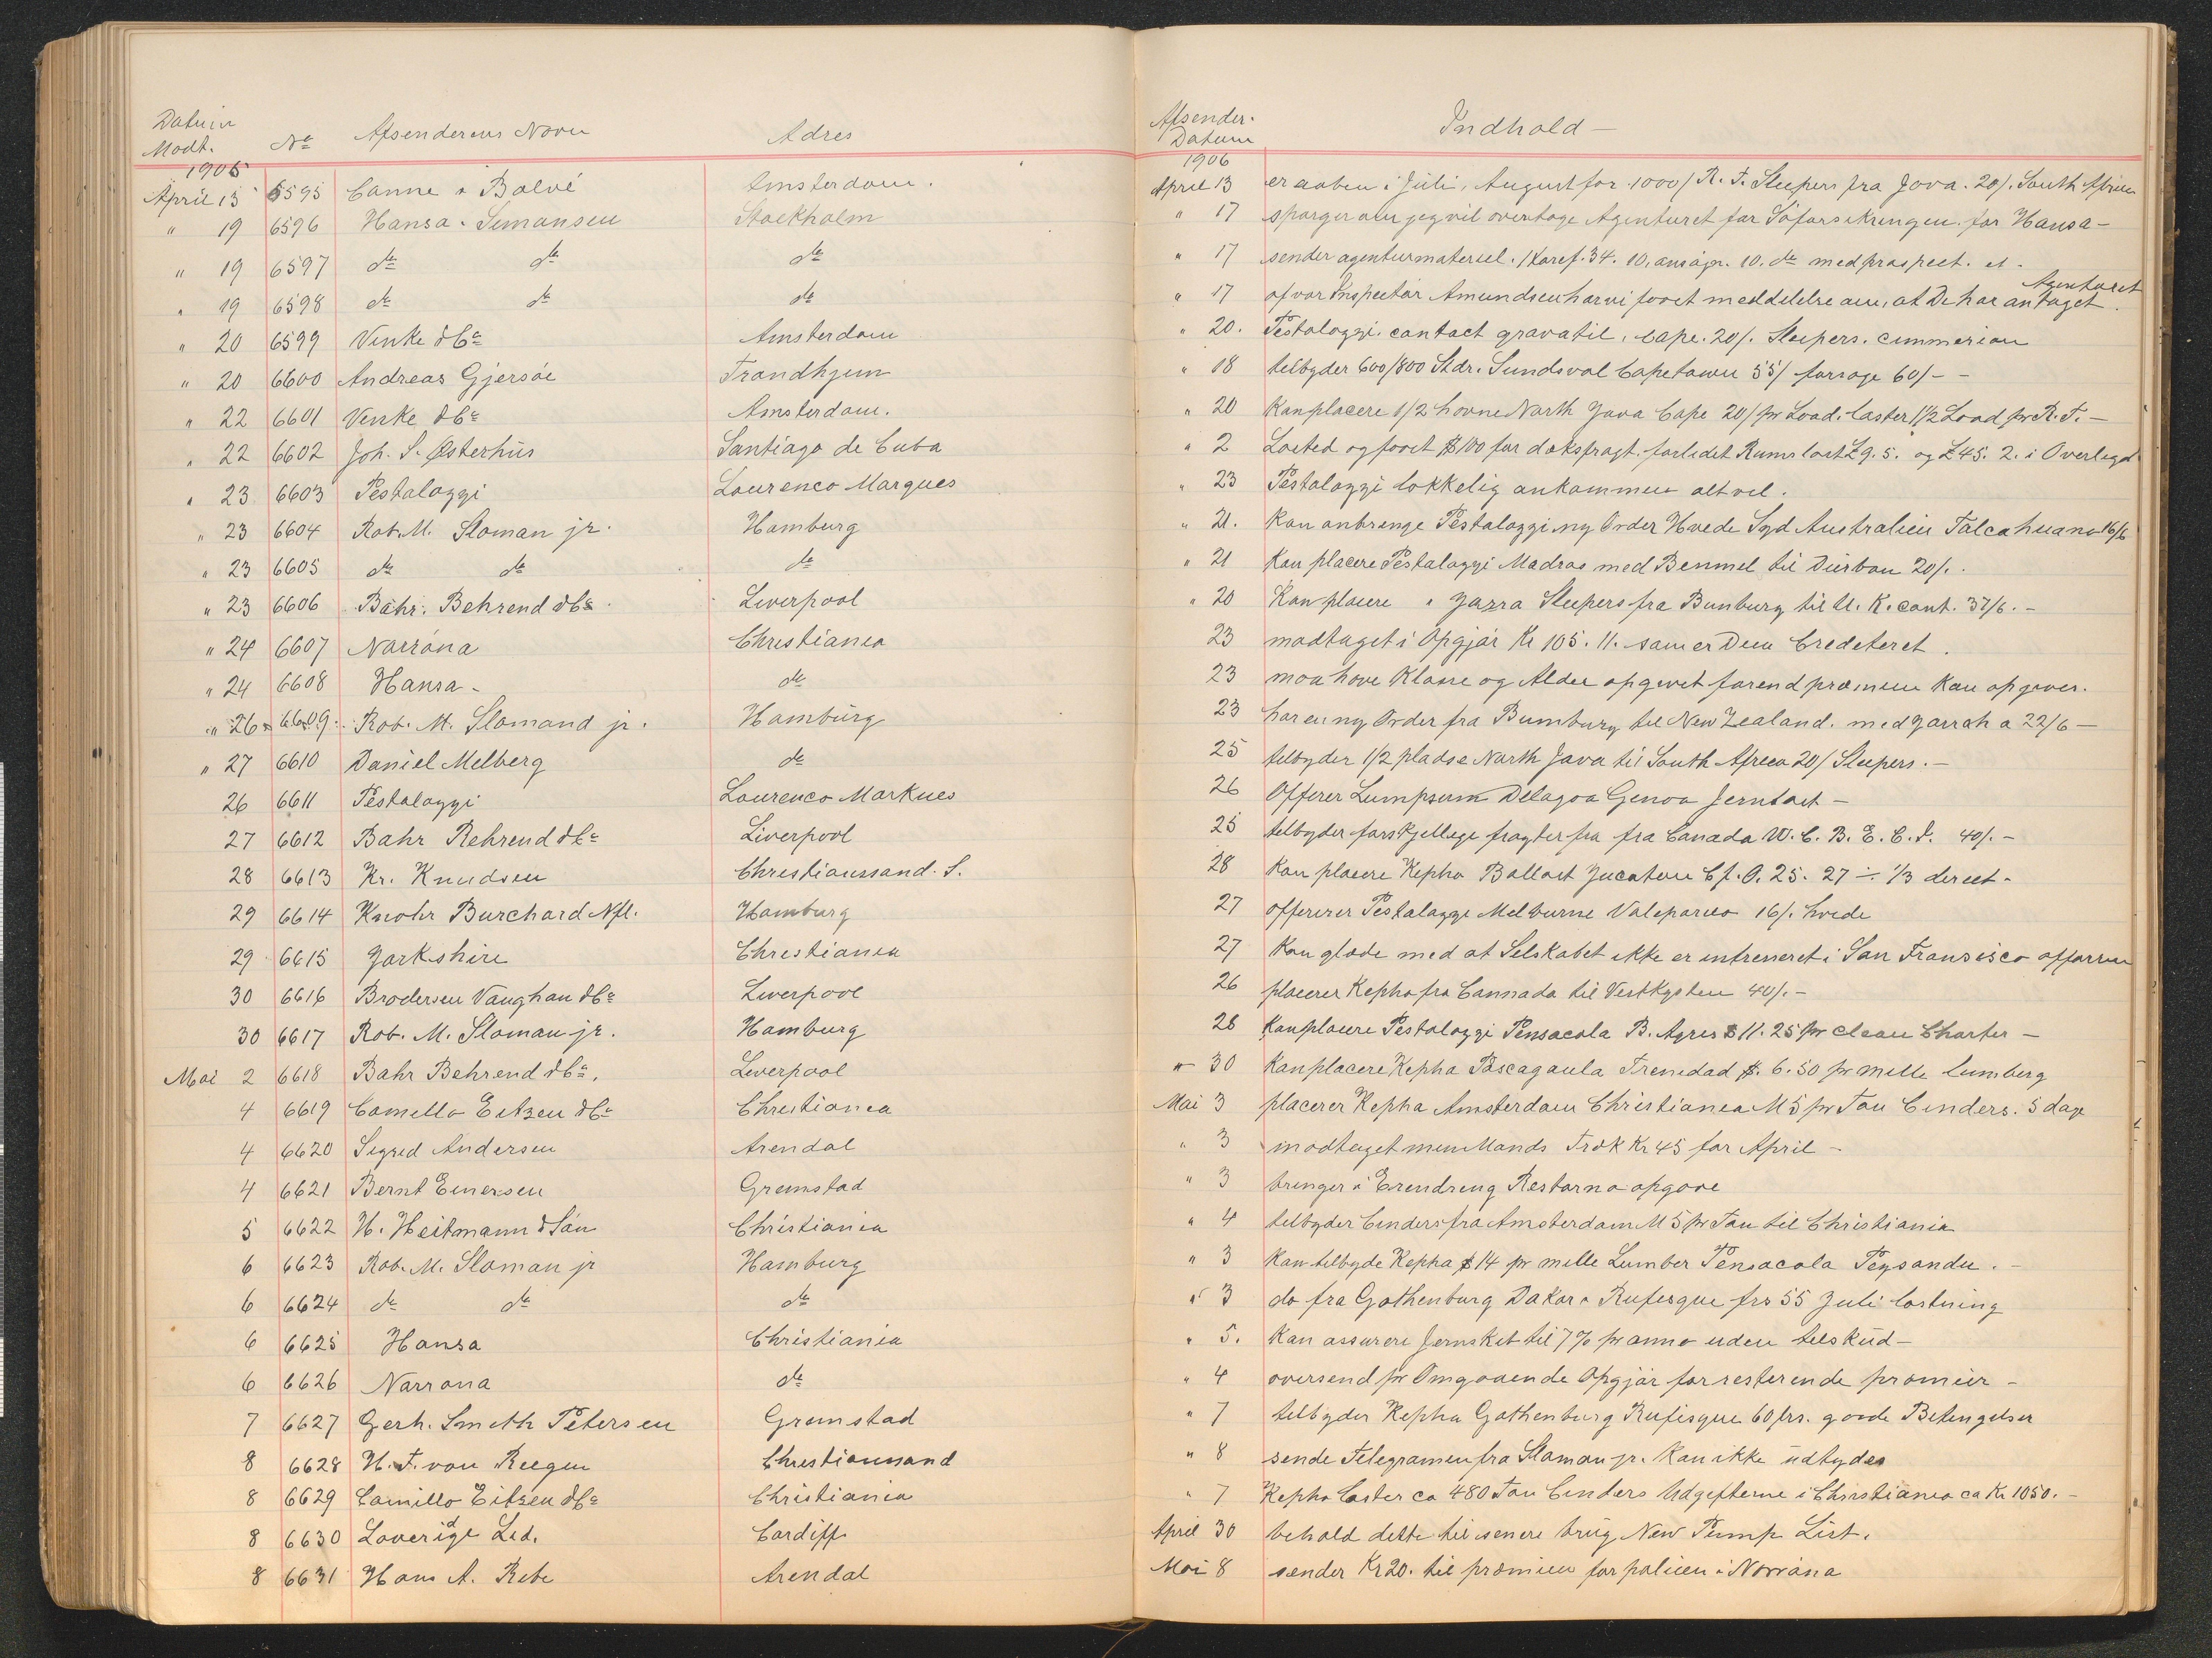 Datum Modt. No Afsenderens Navn Adres Afsender-Datum Indhold —
1906 1906
April 15 6595 Canne & Balvé Amsterdam. April 13 er aaben i Juli, August for 1000/ R. T. Sleepers fra Java. 20/. South Africa
" 19 6596 Hansa - Simonsen Stockholm " 17 sporger om jeg vil overtage Agenturet for Söforsikringen for Hansa -
" 19 6597 do do do " 17 sender agenturmateriel. 10. do med prospect.
" 19 6598 do do do " 17 af vor Inspectör Amundsen har vi faaet meddelelse om, at De har antaget Agenturet.
" 20 6599 Venke & Co Amsterdam " 20. Pestalozzi. Cape. 20/. Sleepers. cimmerian
" 20 6600 Andreas Gjersöe Trondhjem " 18 tilbyder 600/800 Stdr. Sundsval Capetown 55/ forsoge 60/ - -
" 22 6601 Venke & Co Amsterdam. " 20 Kan placere 1/2 havne North Java Cape 20/ pr Load. laster 1 1/2 Load pr R. T. —
" 22 6602 Joh. S. Østerhús Santiago de Cuba " 2 Losted og faaet $100 for doksfragt. £9. 5. og £45. 2. i Overlegd
" 23 6603 Pestalozzi Lourenco Marques " 23 Pestalozzi lokkelig ankommen alt vel.
" 23 6604 Rob. M. Sloman jr. Hamburg " 21. Kan anbringe Pestalozzi ny Order Hvede Syd Australien Talcahuano 16/6
" 23 6605 do do do " 21 Kan placere Pestalozzi Madras med Benmel til Durban 20/.
" 23 6606 Bahr. Behrend & Co. Liverpool " 20 Kan placere " Jazra Sleepers fra Bunburg til U. K. cont. 37/6. -
" 24 6607 Narröna Christiania 23 modtaget i Opgjör Kr 105. 11. som er Dem Crediteret.
" 24 6608 Hansa - do 23 maa have Klasse og Alder opgivet forend præmien Kan opgives.
" 26 6609. Rob. M. Slomand jr. Hamburg 23 har en ny Order fra Bumburg til New Zealand. med Jarrah a 22/6 —
" 27 6610 Daniel Melberg do 25 tilbyder 1/2 pladse North Java til South Africa 20/ Sleepers. -
26 6611 Pestalozzi Lourenco Markues 26 Offerer Lumpsum Delagoa Genoa Jernlast —
27 6612 Bahr Rehrend & Co Liverpool 25 tilbyder forskjellige fragter fra fra Canada W. C. B. E. C. I. 40/. -
28 6613 Kr. Knudsen Christianssand. S. 28 Kan placere Kepha Ballast Jucatan Cf. O. 25. 27 ÷ 1/3 direct -
29 6614 Knohr Burchard Nfl. Hamburg 27 offererer Pestalozzi Melburne Valeparieo 16/. hvede
29 6615 Jorkshire Christiania 27 Kan glæde med at Selskabet ikke er intresseret i San Fransisco affæren
30 6616 Brodersen Vaughan & Co Liverpool 26 placerer Kepha fra Cannada til Vestkysten 40/. -
30 6617 Rob. M. Sloman jr. Hamburg 28 Kan placere Pestalozzi Pensacola B. Ayres $11. 25 pr clean Charter —
Mai 2 6618 Bahr Behrend & Co. Liverpool " 30 Kan placere Kepha Pascagaula Trenidad $. 6. 50 pr mille lumberg
4 6619 Camello Eitzen & Co Christiania Mai 3 placerer Kepha Amsterdam Christiania M 5 pr Ton Cinders. 5 dage
4 6620 Sigrid Andersen Arendal " 3 modtaget min Mands Træk Kr 45 for April —
4 6621 Bernt Einersen Gremstad " 3 bringer i Erendring Restarna opgave
5 6622 H. Heitmann & Sön Christiania " 4 tilbyder Cinders fra Amsterdam M 5 pr Ton til Christiania
6 6623 Rob. M. Sloman jr Hamburg " 3 Kan tilbyde Kepha $14 pr mille Lumber Pensacola Peysandu. -
6 6624 do do do " 3 do fra Gothenburg Dakar & Rufesque frs 55 Juli lastning
6 6625 Hansa Christiania " 5. Kan assurere Jernskib til 7% pr anno uden tilskúd -
6 6626 Narrona do " 4 oversend pr Omgaaende Opgjör for resterende præmier -
7 6627 Gerh. Smith Petersen Gremstad " 7 tilbyder Kepha Gothenburg Rufisque 60 frs. goode Betingelser
8 6628 H. T. von Reegen Christianssand " 8 sende Telegramen fra Sloman jr. Kan ikke údtydes
8 6629 Camillo Eitzen & Co Christiania " 7 Kepha laster ca 480 Ton Cinders Udgifterne i Christiania ca Kr 1050. -
8 6630 Loveridge Led. Cardiff April 30 behold dette til senere brúg New Pump List.
8 6631 Hans A. Rebe Arendal Mai 8 sender Kr 20. til præmien for policen i Norröna